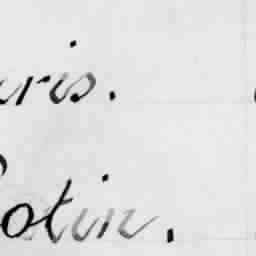 ris.
otin.